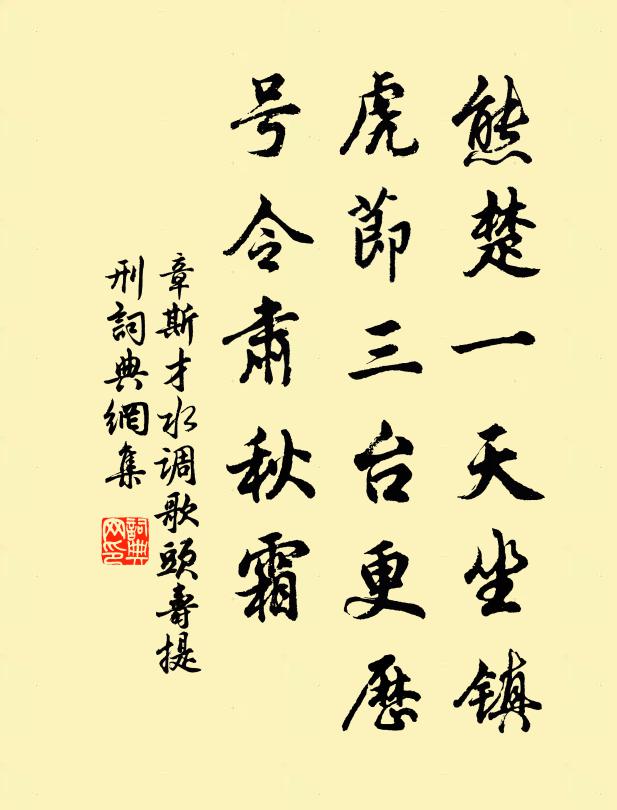 熊楚一天坐镇
虎節三台更歷
号令肅秋霜
章斯才水调歌頭壽提
刑詞典網集
詞典网印